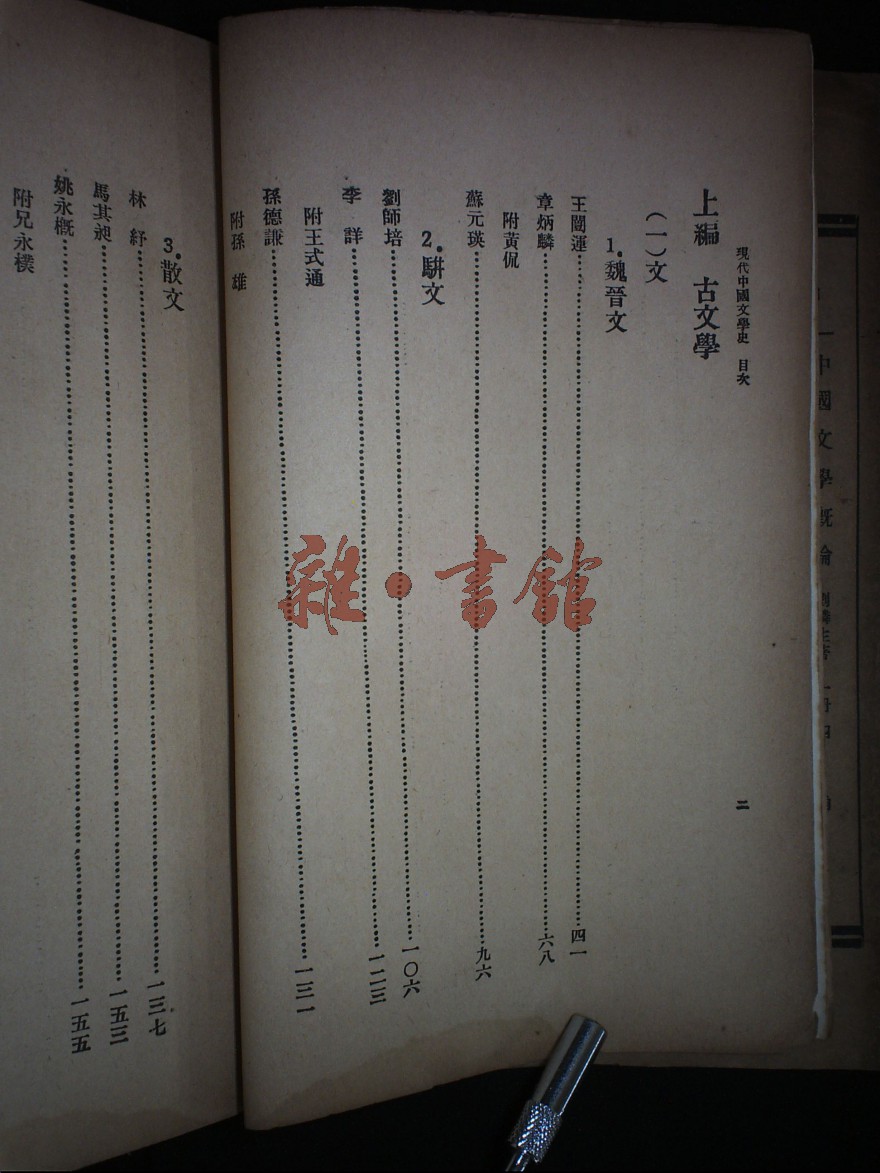 現代中國文學史 目次
二
上編 古文學
(一)文
1.魏晉文
王闓運……四一
章炳麟……六八
附黃侃
蘇元瑛……九六
2.駢文
劉師培……一〇六
李詳……一二三
附王式通
孫德謙……一三一
附孫雄
3.散文
林紓……一三七
馬其昶……一五三
姚永概……一五五
附兄永樸
雜·書館
中國文學概論